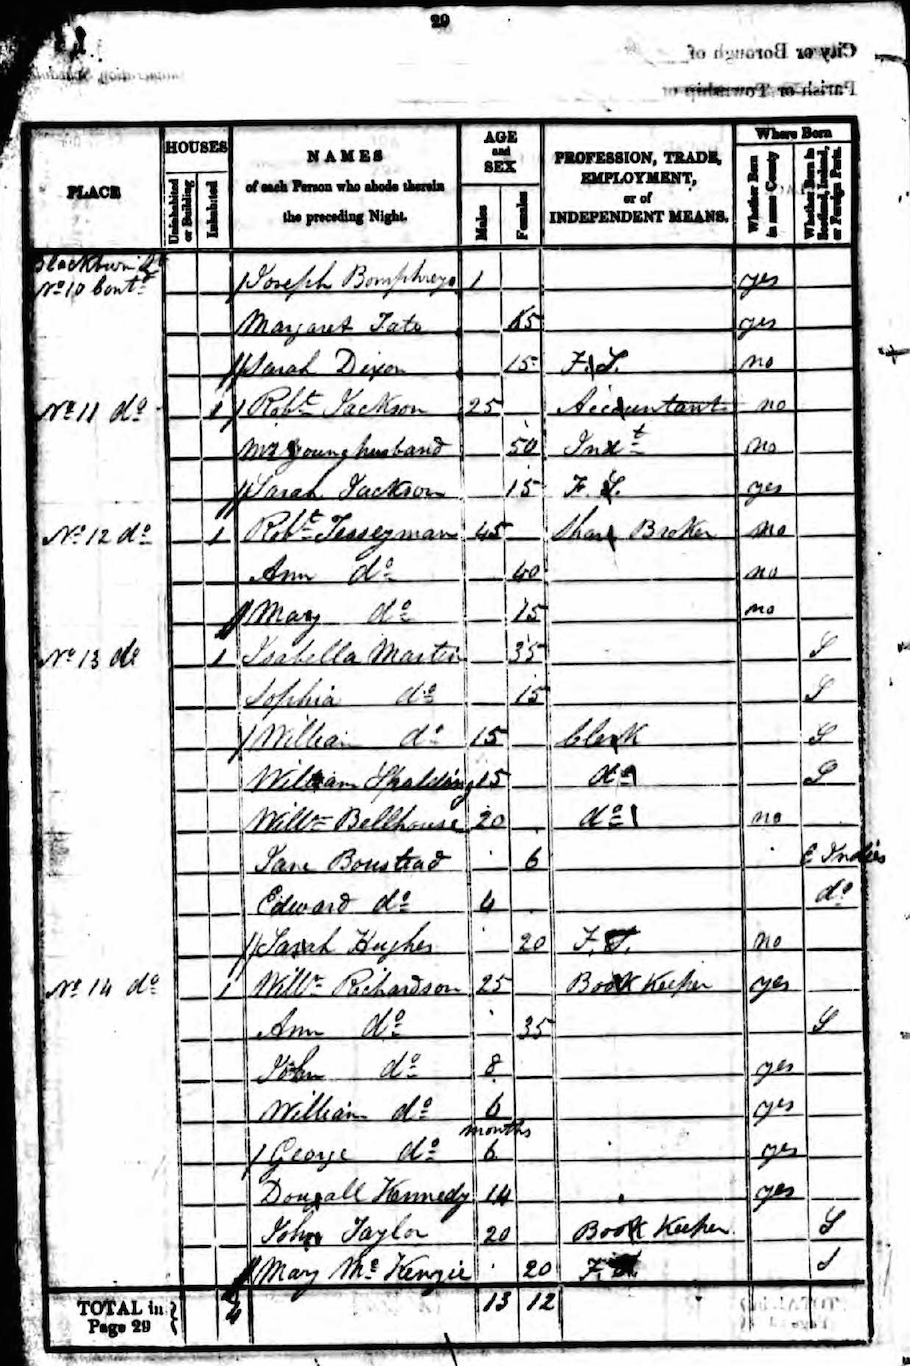 29
City or Borough of
Parish or Township of
PLACE
HOUSES
Uninhabited or Building
Inhabited
NAMES
of each Person who abode therein
the preceding Night.
AGE
and
SEX
Males
Females
PROFESSION, TRADE,
EMPLOYMENT,
or of
INDEPENDENT MEANS.
Where Born
Whether Born in same County
Whether Born in Scotland, Ireland, or Foreign Parts.
Blackburn
No 10 Contd Joseph Bomphreys 1 yes
Margaret Tate 65 yes
Sarah Dixon 15 F.S. no
No 11 do 1 Robt Jackson 25 Accountant no
Mrs Younghusband 50 Indt no
Sarah Jackson 15 F.S. yes
No 12 do 1 Robt Tesseyman 45 Share Broker no
Ann do 40 no
Mary do 15 no
No 13 do 1 Isabella Martin 35 S
Sophia do 15 S
William do 15 Clerk S
William Spalding 15 do S
Willm Bellhouse 20 do no
Jane Boustead 6 E Indies
Edward do 4 do
Sarah Hughes 20 F.S. no
No 14 do 1 Willm Richardson 25 Book Keeper yes
Ann do 35 S
John do 8 yes
William do 6 yes
months
George do 6 yes
Dougall Kennedy 14 yes
John Taylor 20 Book Keeper S
Mary Mc Kenzie 20 F.S. S
TOTAL in
Page 29 4 13 12